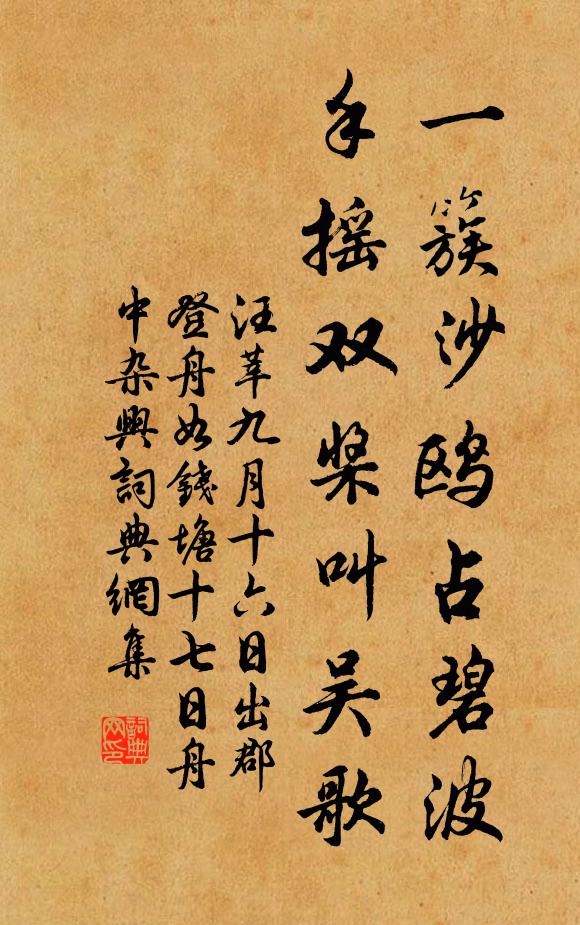 一簇沙鸥占碧波
手摇双桨叫吴歌
汪莘九月十六日出郡
登舟如錢塘十七日舟
中杂興詞典網集
詞典网印